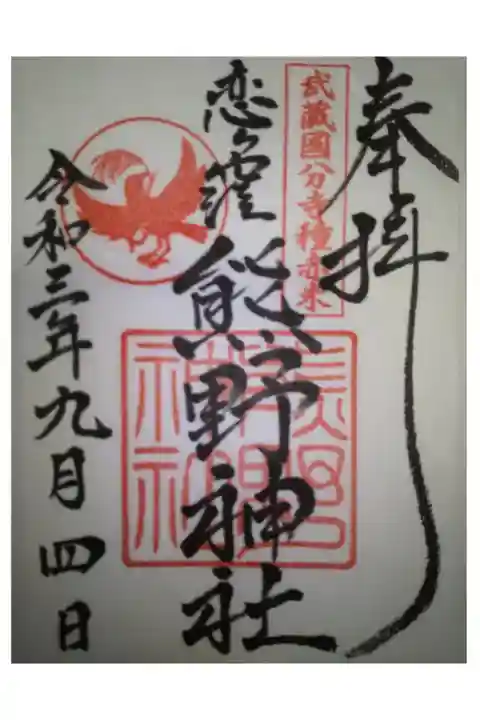 奉拝
武蔵國分寺種赤米
恋ヶ窪
熊野神社
令和三年九月四日